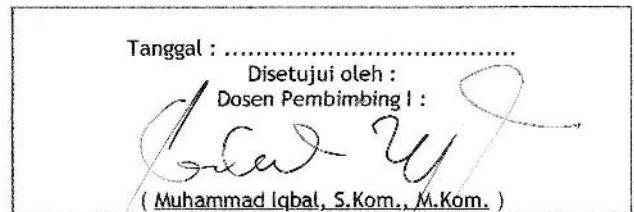 Tanggal : ....................................
Disetujui oleh :
Dosen Pembimbing I :
( Muhammad Iqbal, S.Kom., M.Kom. )